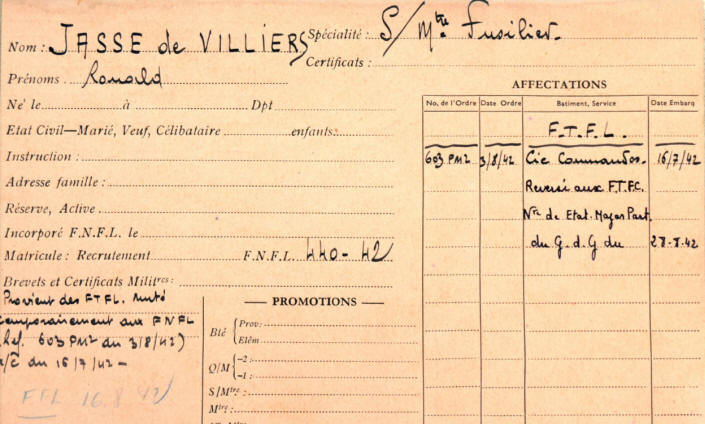 Nom : JASSE de VILLIERS Spécialité : S/Mtre Fusilier.
Certificats :
Prénoms . Ronald
AFFECTATIONS
No. de l'Ordre Date Ordre Batiment, Service Date Embarq
Né le à Dpt
F.T.F.L.
Etat Civil—Marié, Veuf, Célibataire enfants:
603 PM2 3/8/42 Cie Commandos. 16/7/42
Instruction :
Reversé aux F.T.F.L.
Adresse famille :
Ntre de Etat. Major Part.
Réserve, Active
du G. d. G du 28-8-42
Incorporé F.N.F.L. le
Matricule : Recrutement F.N.F.L. 440-42
Brevets et Certificats Militres :
Provient des FTFL. Muté
temporairement aux FNFL
(Ref. 603 PM2 du 3/8/42)
à/c du 16/7/42 -
FFL 16.8.42
— PROMOTIONS —
Blé { Prov:
Elém
Q/M { -2 :
-1 :
S/Mtre :
Mtre :